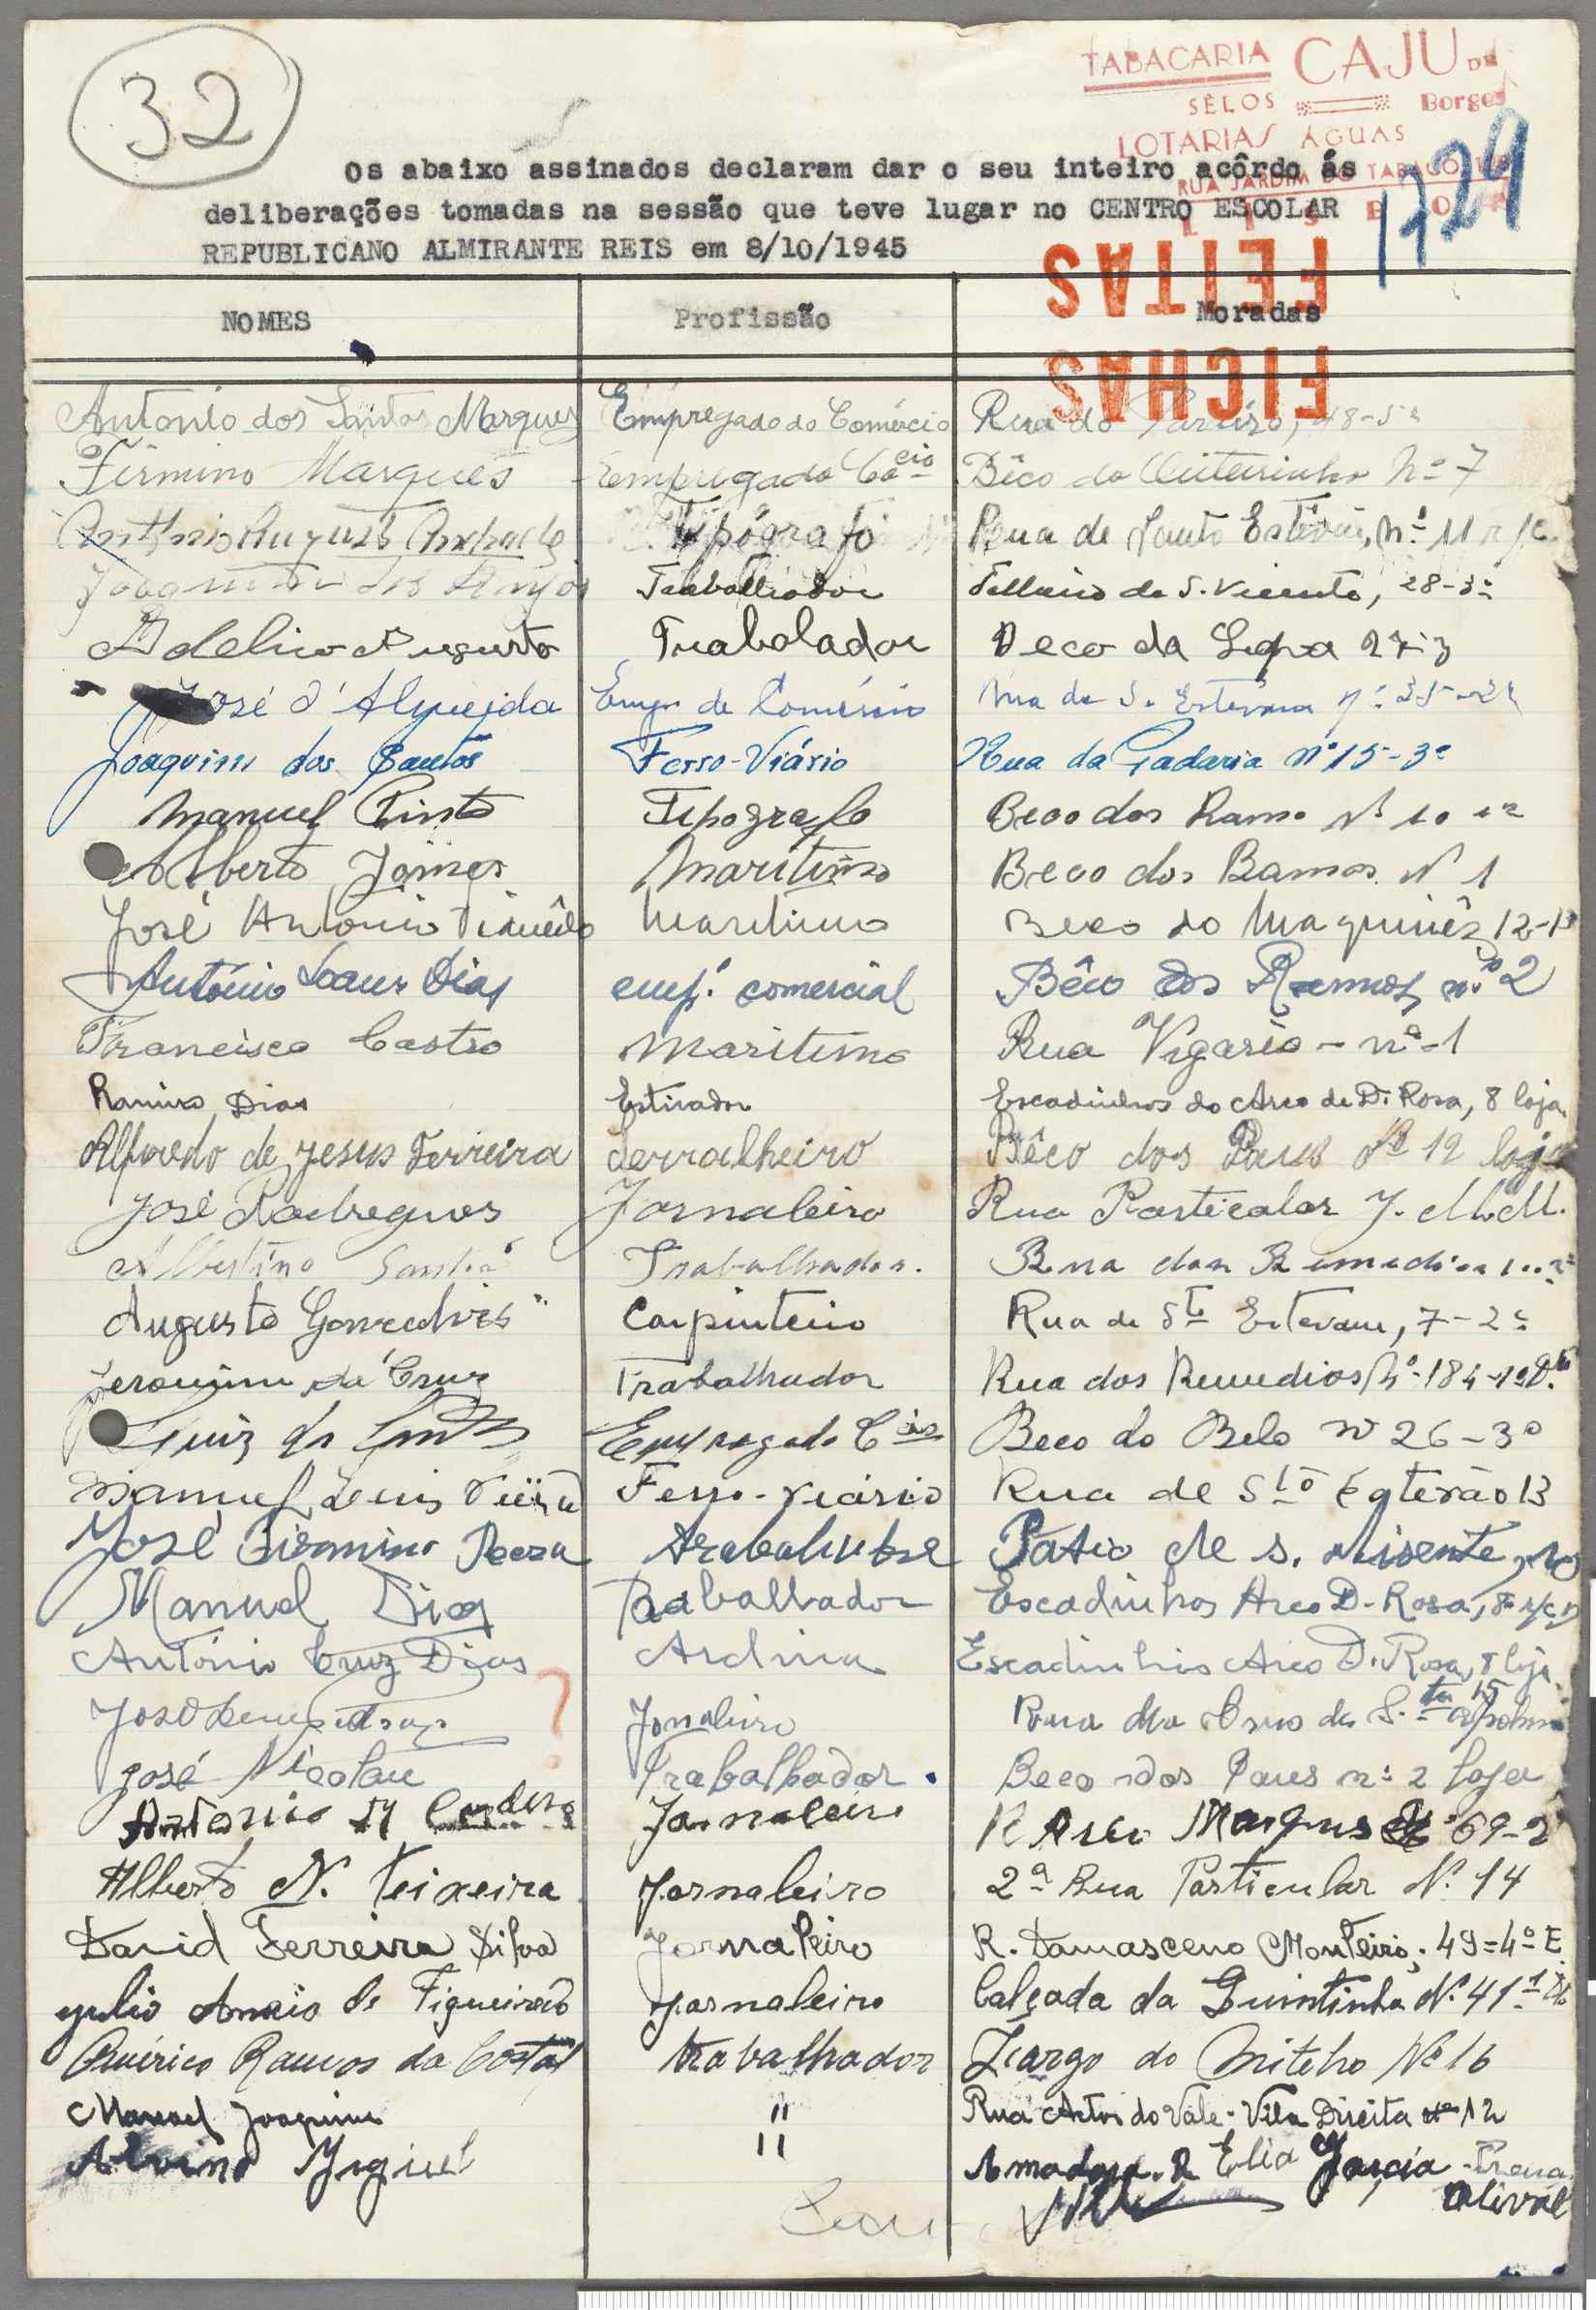 32
TABACARIA CAJU DE
SÊLOS Borges
LOTARIAS ÁGUAS
RUA JARDIM DO TABACO
1729
Os abaixo assinados declaram dar o seu inteiro acôrdo ás
deliberações tomadas na sessão que teve lugar no CENTRO ESCOLAR
REPUBLICANO ALMIRANTE REIS em 8/10/1945
FICHAS FEITAS
NOMES Profissão Moradas
Antonio dos Santos Marques Empregado do Comércio Rua do Paraizo, 48-5º
Firmino Marques Empregado Cocio Bêco do Outeirinho Nº 7
Antonio Augusto Tipógrafo Rua de Santo Estêvão, nº 11 r/c
Joaquim dos Anjos Trabalhador de S. Vicente, 28-3º
Adelino Augusto Trabalador Beco da Lapa 27-3
José d'Almeida Emp. de Comércio Rua de S. Estevam nº 35-2º
Joaquim dos Santos Ferro-Viário Rua da Padaria nº 15-3º
Manuel Pinto Tipografo Beco dos Ramo Nº 10 1º
Alberto Gomes Maritimo Beco dos Ramos Nº 1
José António Maritimo Beco do Maquinêz 12-1º
António Dias empº comercial Bêco dos Ramos, nº 2
Francisco Castro Maritimo Rua Vigario - nº-1
Ramiro Dias Estivador Escadinhas do Arco de D. Rosa, 8 loja
Alfredo de Jesus Ferreira Serralheiro Bêco dos Paus Nº 12 loja
José Rodregues Jornaleiro Rua Particolar J. M.M.
Albertino Trabalhador. Rua dos Remedios
Augusto Gonçalves Carpinteiro Rua de Sto Estevam, 7-2º
Jeronimo da Cruz Trabalhador Rua dos Remedios, Nº-184-1º D.to
Luiz Empregado Cio Beco do Belo nº 26-3º
Manuel Luis Ferro-viário Rua de Sto Esterão 13
José Firmino Pátio de S. Visente, 10
Manuel Dias Trabalhador Escadinhas Arco D. Rosa, 8 r/c
António Cruz Dias Ardina Escadinhas Arco D. Rosa, 8 loja
José Jornaleiro Rua da Cruz de S.ta Apolonia
José Nicolau Trabalhador. Beco dos Paus nº 2 loja
Antonio M Cordeiro Jornaleiro R Arco Marques 69-2
Alberto N. Teixeira Jornaleiro 2ª Rua Particular Nº 14
David Ferreira Silva Jornaleiro R. Damasceno Monteiro, 49=4º E.
Julio Amaro de Figueiredo Jornaleiro Calçada da Quintinha Nº 41 1º
Américo Ramos da Costa Trabalhador Largo do Miteho Nº 16
Manuel Joaquim " Rua Actor do Vale - Vila Direita nº 12
Alvino Miguel " Amadora. R Elia Garcia -
Olival